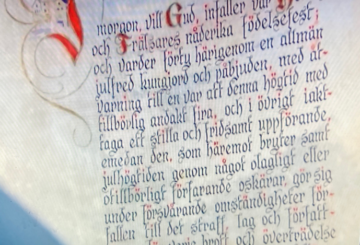 I morgon, vill Gud, infaller vår
och Frälsares nåderika födelsefest;
och varder förty härigenom en allmän
julfred kungjord och påbjuden, med åt-
varning till en var att denna högtid med
tillbörlig andakt fira, och i övrigt iakt-
taga ett stilla och fridsamt uppförande,
emedan den, som häremot bryter samt
julhögtiden genom något olagligt eller
otillbörligt förfarande oskärar, gör sig
under försvårande omständigheter för-
fallen till det straff, lag och författ-
brott och överträdelse